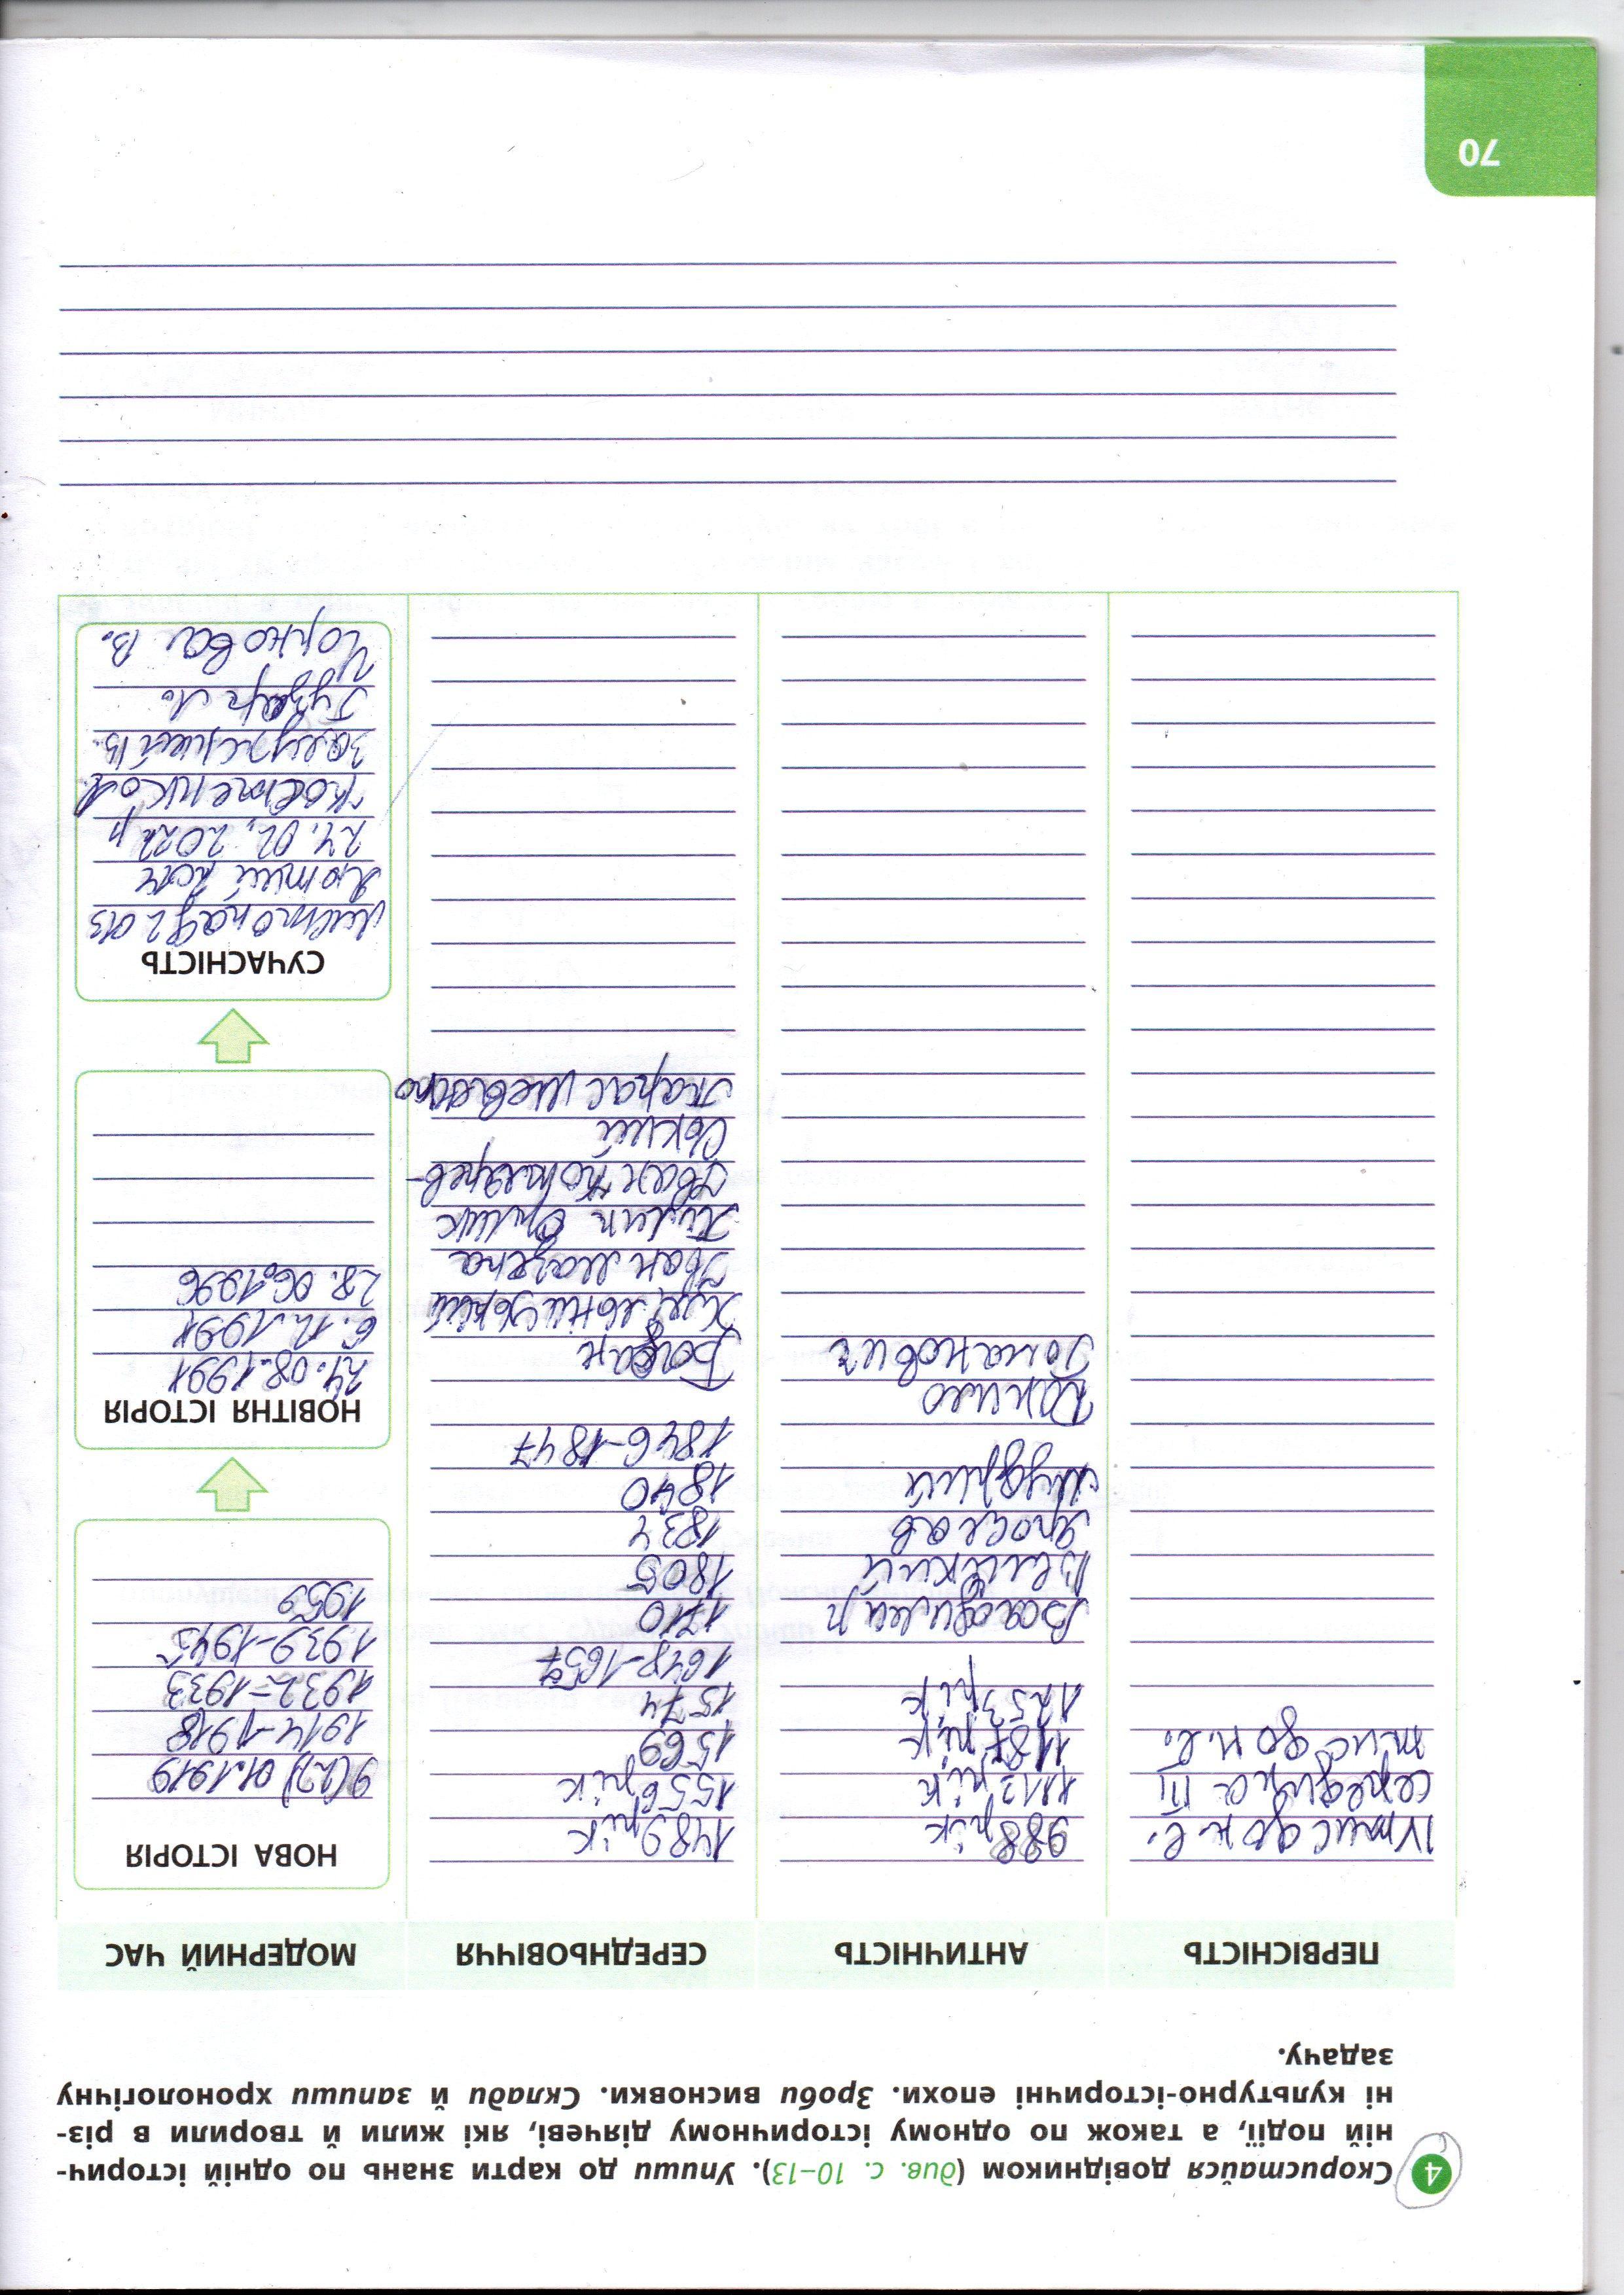 4 Скористайся довідником (див. с. 10–13). Упиши до карти знань по одній історич-
ній події, а також по одному історичному діячеві, які жили й творили в різ-
ні культурно-історичні епохи. Зроби висновки. Склади й запиши хронологічну
задачу.
ПЕРВІСНІСТЬ
IV тис до н. е.
середина III
тис до н. е.
АНТИЧНІСТЬ
988 рік
1113 рік
1187 рік
1253 рік
Володимир
Великий
Ярослав
Мудрий
Данило
Романович
СЕРЕДНЬОВІЧЧЯ
1489 рік
1556 рік
1569
1574
1648-1657
1710
1805
1834
1840
1846-1847
Богдан
Хмельницький
Іван Мазепа
Пилип Орлик
Іван Котлярев-
ський
Тарас Шевченко
МОДЕРНИЙ ЧАС
НОВА ІСТОРІЯ
9(22) 01.1919
1914-1918
1932-1933
1939-1945
1959
НОВІТНЯ ІСТОРІЯ
24.08.1991
6.12.1991
28.06.1996
СУЧАСНІСТЬ
Листопад 2013
Лютий 2014
24.02.2022 р
Костенко Л.
Залужний В.
Гузар Л.
Чорновол В.
70